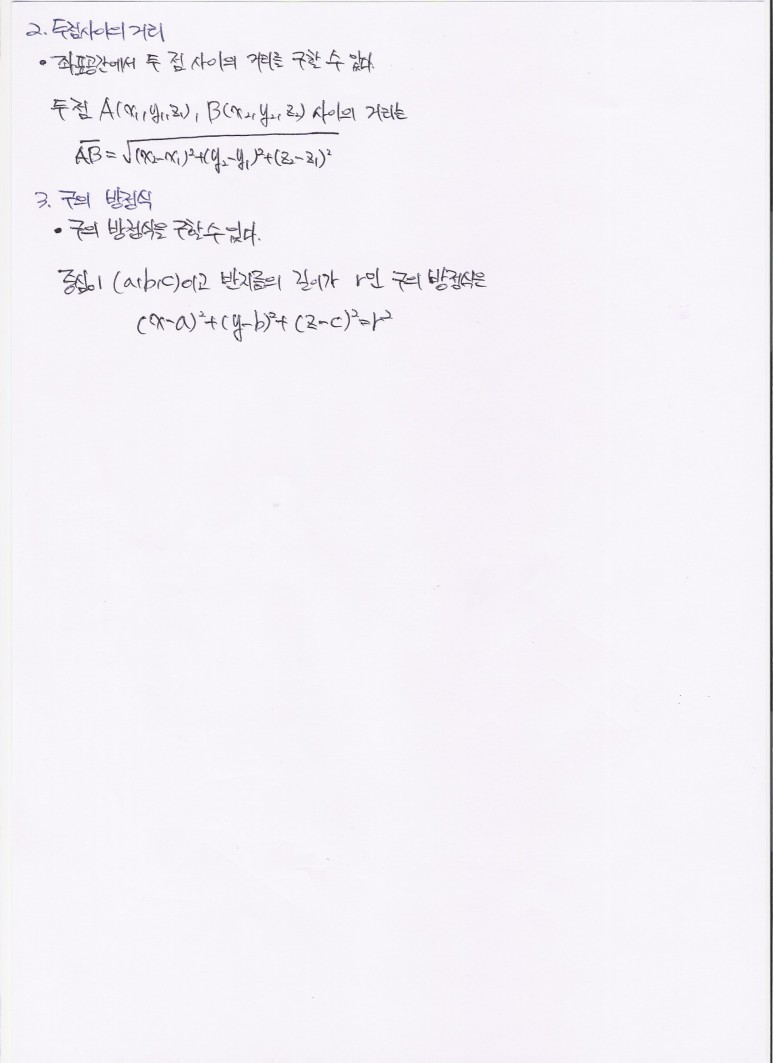 2. 두점사이의 거리
• 좌표공간에서 두 점 사이의 거리를 구할 수 있다.
두점 A(x₁,y₁,z₁), B(x₂,y₂,z₂) 사이의 거리는
A̅B̅ = √(x₂-x₁)²+(y₂-y₁)²+(z₂-z₁)²
3. 구의 방정식
• 구의 방정식을 구할 수 있다.
중심이 (a,b,c)이고 반지름의 길이가 r인 구의 방정식은
(x-a)²+(y-b)²+(z-c)²=r²